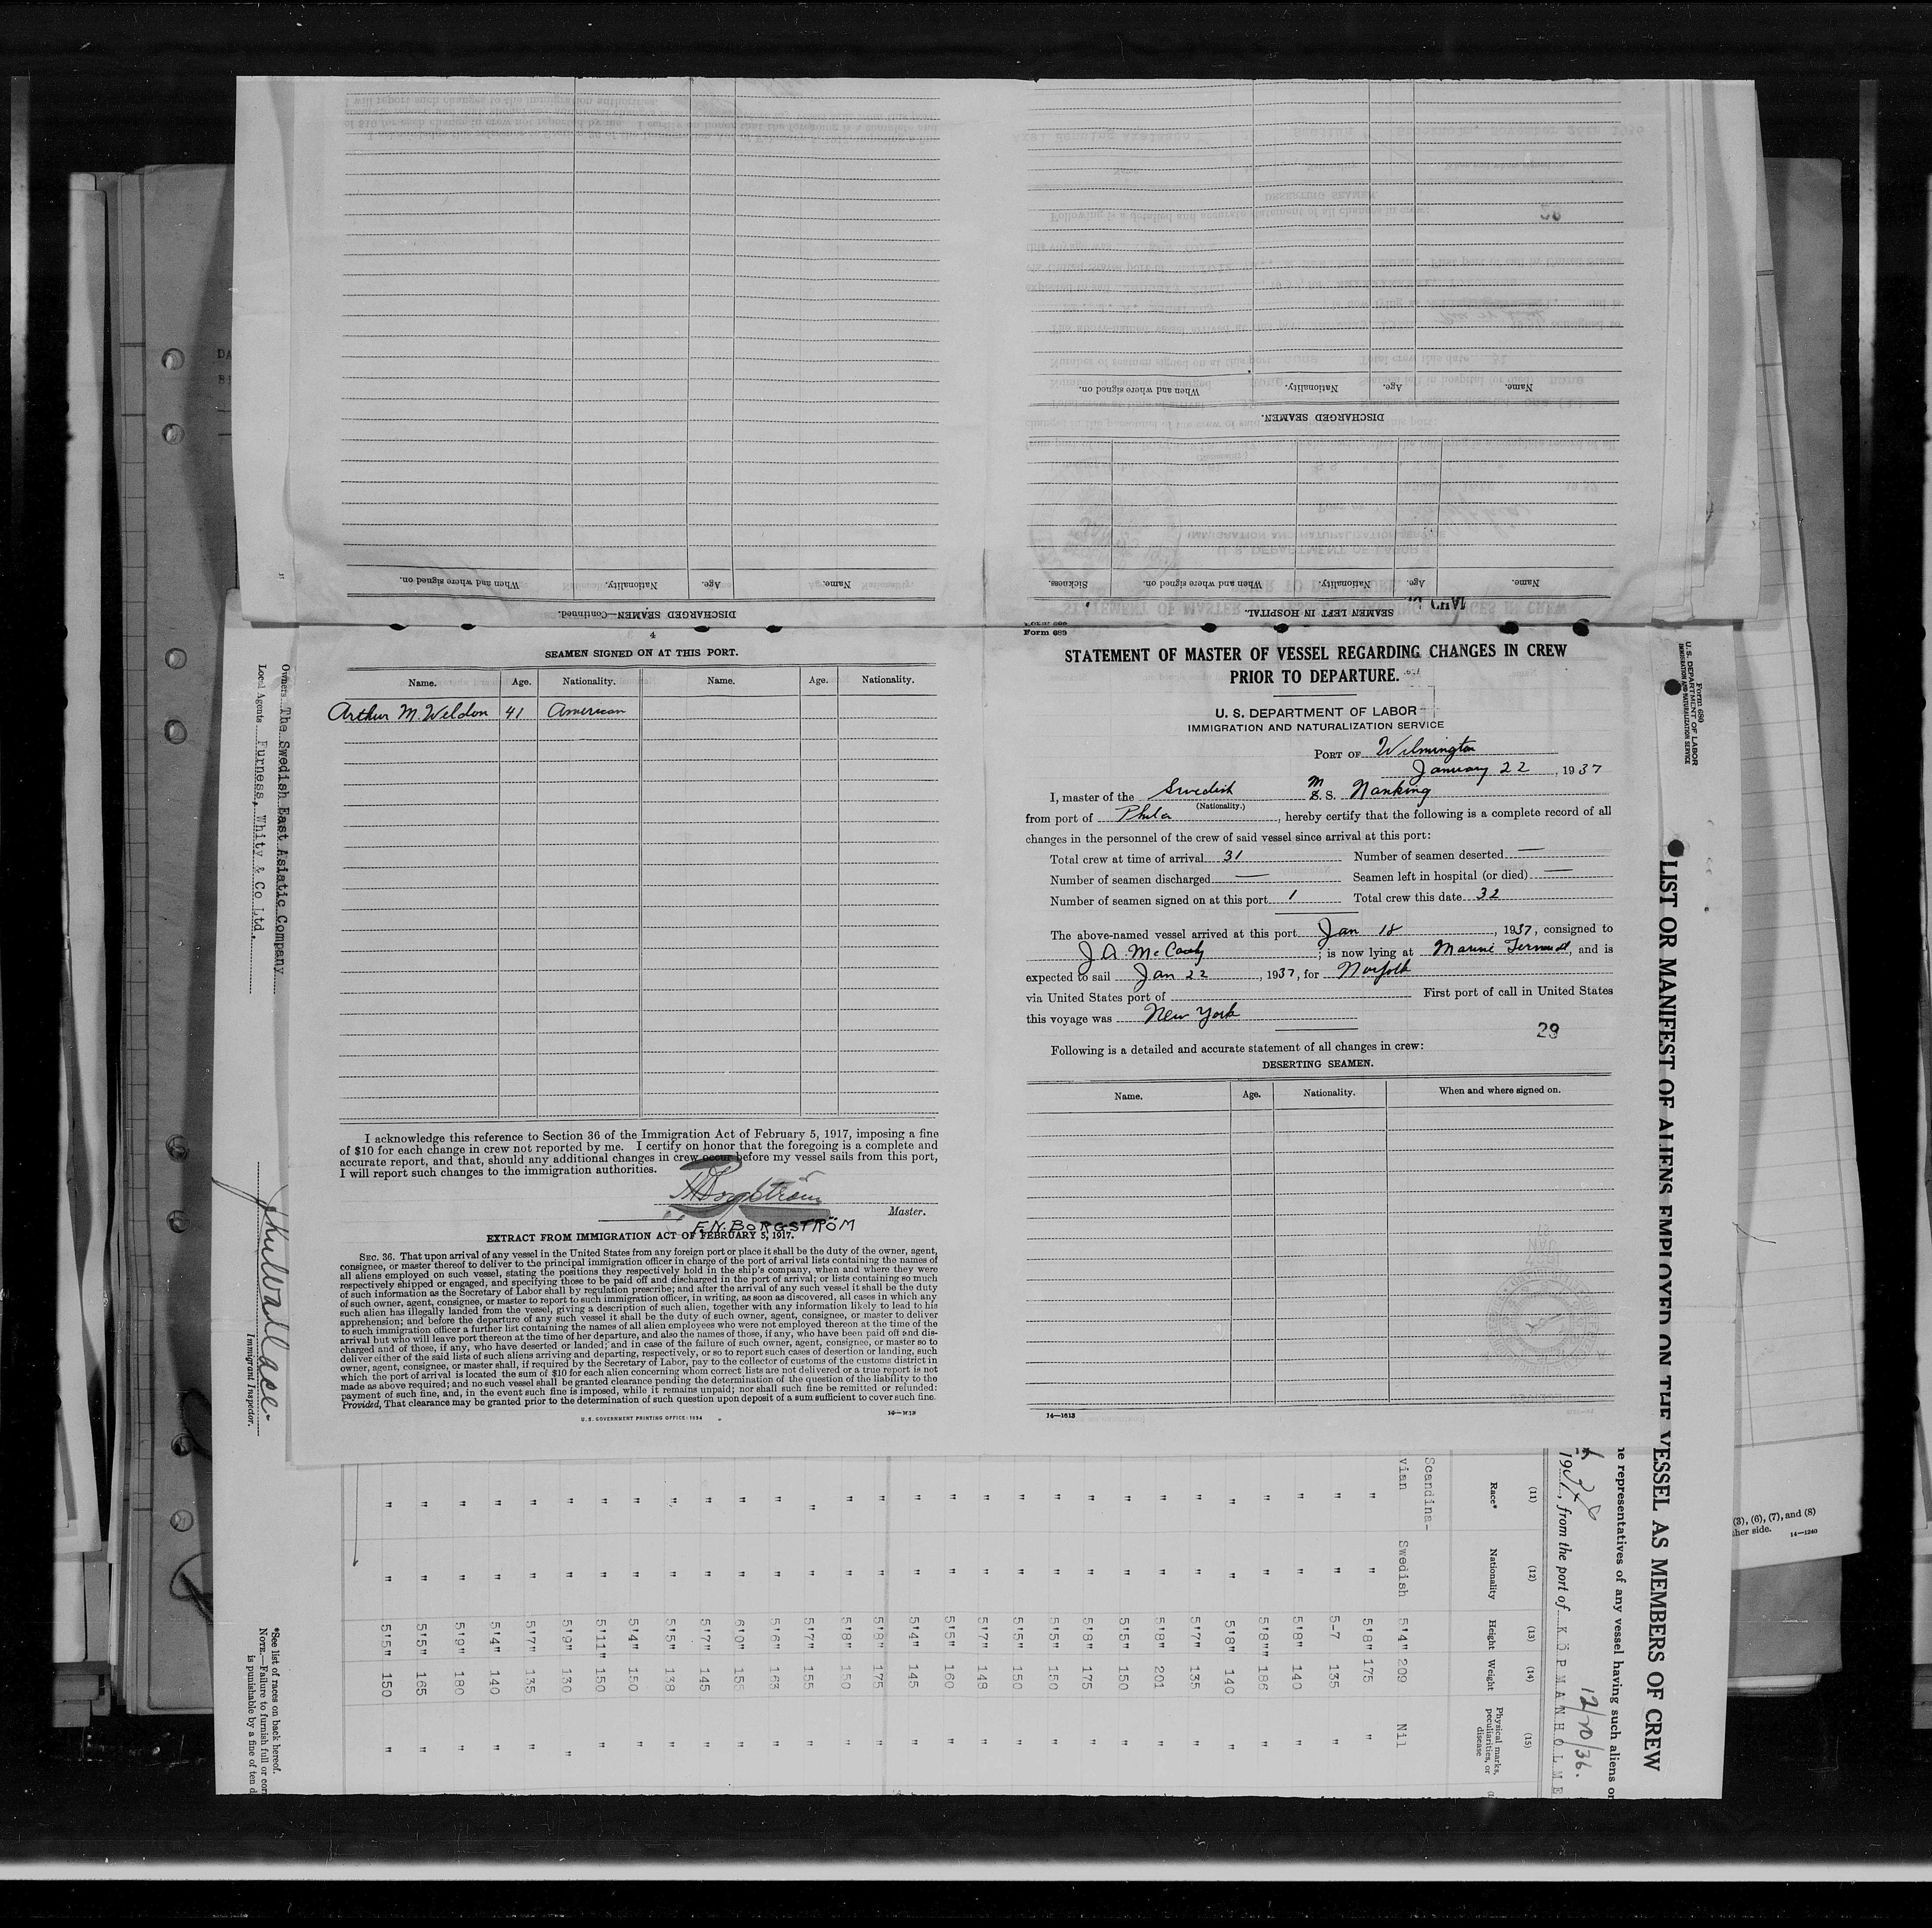 DISCHARGED SEAMEN.
Name.
Age.
Nationality.
When and where signed on.
SEAMEN LEFT IN HOSPITAL.
Name.
Age.
Nationality.
When and where signed on.
Sickness.
DISCHARGED SEAMEN—Continued.
Name.
Age.
Nationality.
When and where signed on.
4
SEAMEN SIGNED ON AT THIS PORT.
Name. Age. Nationality. Name. Age. Nationality.
Arthur M. Weldon 41 American
I acknowledge this reference to Section 36 of the Immigration Act of February 5, 1917, imposing a fine
of $10 for each change in crew not reported by me. I certify on honor that the foregoing is a complete and
accurate report, and that, should any additional changes in crew occur before my vessel sails from this port,
I will report such changes to the immigration authorities.
Borgström
Master.
F.N. BORGSTRÖM
EXTRACT FROM IMMIGRATION ACT OF FEBRUARY 5, 1917.
SEC. 36. That upon arrival of any vessel in the United States from any foreign port or place it shall be the duty of the owner, agent,
consignee, or master thereof to deliver to the principal immigration officer in charge of the port of arrival lists containing the names of
all aliens employed on such vessel, stating the positions they respectively hold in the ship's company, when and where they were
respectively shipped or engaged, and specifying those to be paid off and discharged in the port of arrival; or lists containing so much
of such information as the Secretary of Labor shall by regulation prescribe; and after the arrival of any such vessel it shall be the duty
of such owner, agent, consignee, or master to report to such immigration officer, in writing, as soon as discovered, all cases in which any
such alien has illegally landed from the vessel, giving a description of such alien, together with any information likely to lead to his
apprehension; and before the departure of any such vessel it shall be the duty of such owner, agent, consignee, or master to deliver
to such immigration officer a further list containing the names of all alien employees who were not employed thereon at the time of the
arrival but who will leave port thereon at the time of her departure, and also the names of those, if any, who have been paid off and dis-
charged and of those, if any, who have deserted or landed; and in case of the failure of such owner, agent, consignee, or master so to
deliver either of the said lists of such aliens arriving and departing, respectively, or so to report such cases of desertion or landing, such
owner, agent, consignee, or master shall, if required by the Secretary of Labor, pay to the collector of customs of the customs district in
which the port of arrival is located the sum of $10 for each alien concerning whom correct lists are not delivered or a true report is not
made as above required; and no such vessel shall be granted clearance pending the determination of the question of the liability to the
payment of such fine, and, in the event such fine is imposed, while it remains unpaid; nor shall such fine be remitted or refunded:
Provided, That clearance may be granted prior to the determination of such question upon deposit of a sum sufficient to cover such fine.
U. S. GOVERNMENT PRINTING OFFICE: 1934
14—1613
Form 689
STATEMENT OF MASTER OF VESSEL REGARDING CHANGES IN CREW
PRIOR TO DEPARTURE.
U. S. DEPARTMENT OF LABOR
IMMIGRATION AND NATURALIZATION SERVICE
PORT OF Wilmington
January 22, 1937
I, master of the Swedish M S. S. Nanking
(Nationality.)
from port of Phila, hereby certify that the following is a complete record of all
changes in the personnel of the crew of said vessel since arrival at this port:
Total crew at time of arrival 31 Number of seamen deserted —
Number of seamen discharged — Seamen left in hospital (or died) —
Number of seamen signed on at this port 1 Total crew this date 32
The above-named vessel arrived at this port Jan 18, 1937, consigned to
J. A. McCarthy; is now lying at Marine Terminal, and is
expected to sail Jan 22, 1937, for Norfolk
via United States port of First port of call in United States
this voyage was New York
29
Following is a detailed and accurate statement of all changes in crew:
DESERTING SEAMEN.
Name. Age. Nationality. When and where signed on.
14—1613
Owners The Swedish East Asiatic Company
Local Agents Furness, Whity & Co Ltd.
Immigrant Inspector.
*See list of races on back hereof.
NOTE.—Failure to furnish full or cor
is punishable by a fine of ten d
Form 689
U. S. DEPARTMENT OF LABOR
IMMIGRATION AND NATURALIZATION SERVICE
LIST OR MANIFEST OF ALIENS EMPLOYED ON THE VESSEL AS MEMBERS OF CREW
e representatives of any vessel having such aliens on
12/20/36.
, from the port of KÖPMANHOLME
(11) (12) (13) (14) (15)
Race* Nationality Height Weight Physical marks, peculiarities, or disease
Scandina-
vian Swedish 5'4" 209 Nil
" " 5'8" 175 "
" " 5-7 135 "
" " 5'8" 140 "
" " 5'8"" 186 "
" " 5'8" 140 "
" " 5'7" 135 "
" " 5'8" 201 "
" " 5'5" 150 "
" " 5'8" 175 "
" " 5'5" 150 "
" " 5'5" 150 "
" " 5'7" 148 "
" " 5'5" 160 "
" " 5'4" 145 "
" " 5'8" 175 "
" " 5'8" 150 "
" " 5'7" 155 "
" " 5'6" 163 "
" " 6'0" 155 "
" " 5'7" 145 "
" " 5'5" 138 "
" " 5'4" 150 "
" " 5'11" 150 "
" " 5'9" 130 "
" " 5'7" 135 "
" " 5'4" 140 "
" " 5'9" 180 "
" " 5'5" 165 "
" " 5'5" 150 "
(3), (6), (7), and (8)
her side. 14—1240